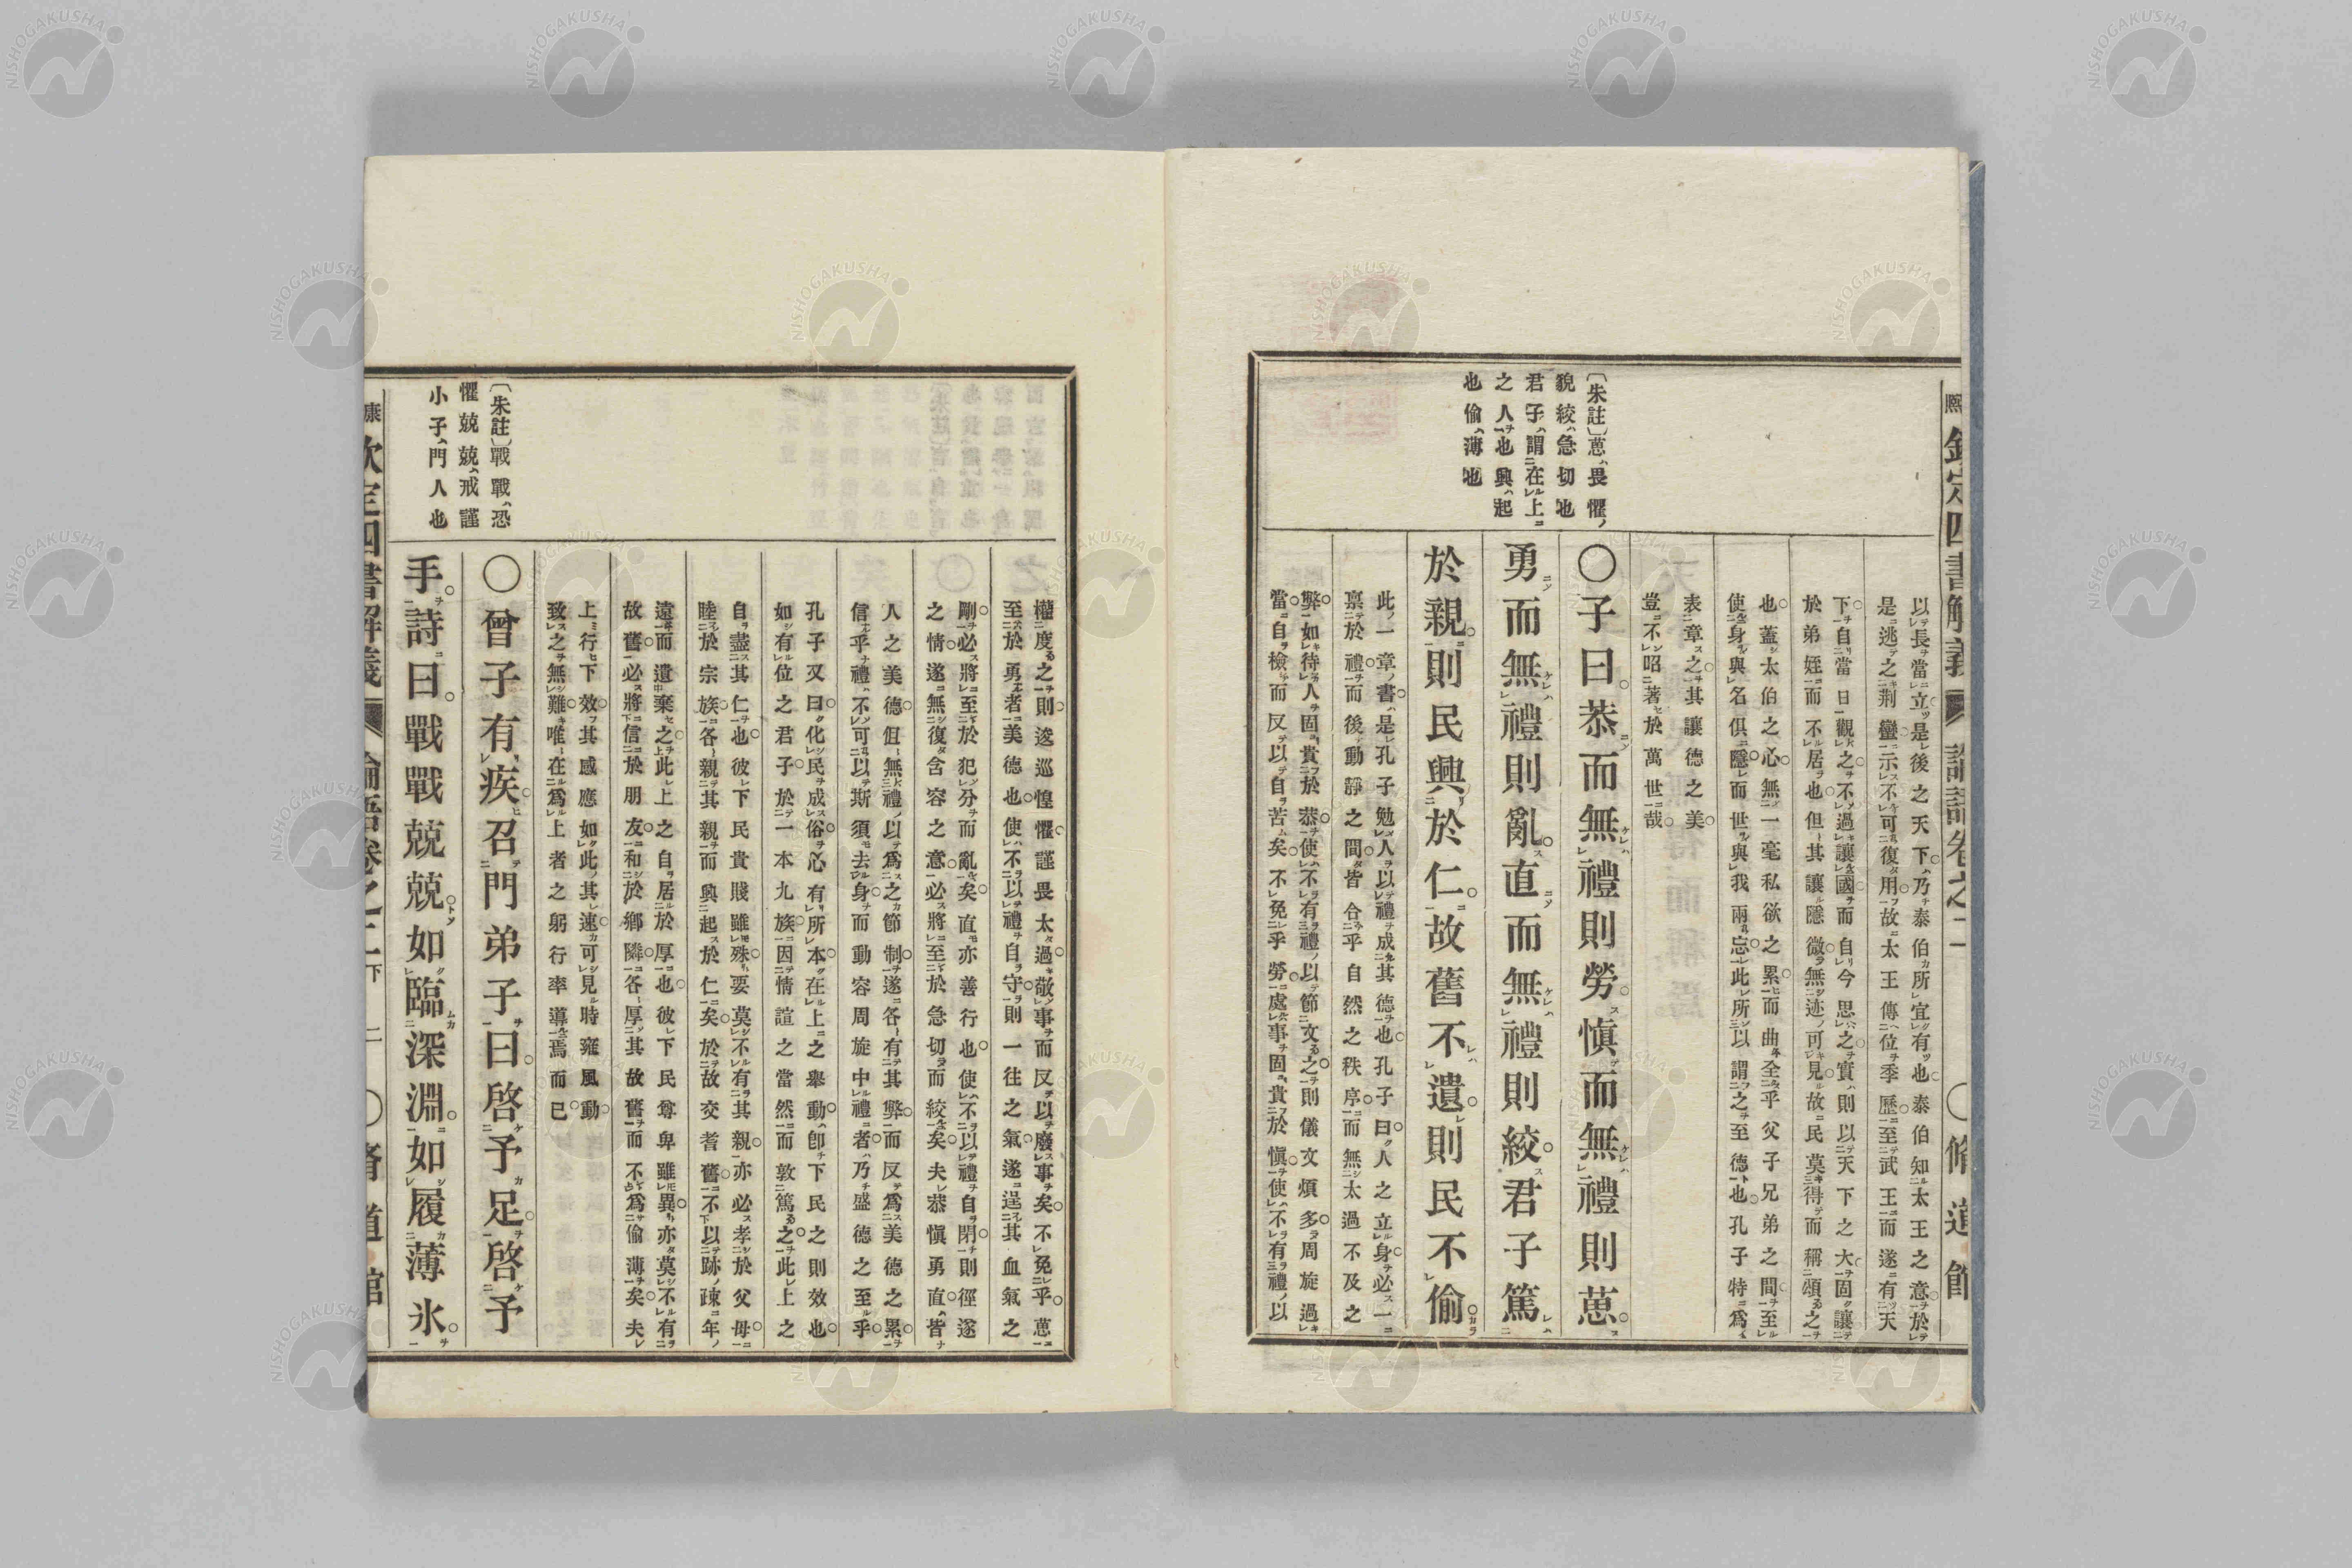 以長當立是後之天下乃泰伯所宜有也泰伯知太王之意於
是逃之荆蠻示不可復用故太王傳位季歷至武王而遂有天
下自當日觀之不過讓國而自今思之實則以天下之大固讓
於弟姪而不居也但其讓隱微無迹可見故民莫得而稱頌之
也蓋太伯之心無一毫私欲之累而曲全乎父子兄弟之間至
使身與名俱隱而世與我兩忘此所以謂之至德也孔子特爲
表章之其讓德之美
豈不昭著於萬世哉
〔朱註〕葸、畏懼
貌絞、急切也
君子、謂在上
之人也興、起
也偷、薄也
〇子曰恭而無禮則勞愼而無禮則葸
勇而無禮則亂直而無禮則絞君子篤
於親則民興於仁故舊不遺則民不偷
此一章書是孔子勉人以禮成其德也孔子曰人之立身必一
禀於禮而後動靜之間皆合乎自然之秩序而無太過不及之
弊如待人固貴於恭使不有禮以節文之則儀文煩多周旋過
當自檢而反以自苦矣不免乎勞處事固貴於愼使不有禮以
權度之則逡巡惶懼謹畏太過敬事而反以廢事矣不免乎葸
至於勇者美德也使不以禮自守則一往之氣遂逞其血氣之
剛必將至於犯分而亂矣直亦善行也使不以禮自閑則徑遂
之情遂無復含容之意必將至於急切而絞矣夫恭愼勇直皆
人之美德但無禮以爲之節制遂各有其弊而反爲美德之累
信乎禮不可以斯須去身而動容周旋中禮者乃盛德之至乎
孔子又曰化民成俗必有所本在上之舉動卽下民之則效也
如有位之君子於一本九族因情誼之當然而敦篤之此上之
自盡其仁也彼下民貴賤雖殊要莫不有其親亦必孝於父母
睦於宗族各親其親而興起於仁矣於故交者舊不以跡疎年
遠而遺棄之此上之自居於厚也彼下民尊卑雖異亦莫不有
故舊必將信於朋友和於鄕隣各厚其故舊而不爲偷薄矣夫
上行下效其感應如此其速可見時雍風動
致之無難唯在爲上者之躬行率導焉而已
〔朱註〕戰戰、恐
懼兢兢、戒謹
小子、門人也
〇曾子有疾召門弟子曰啓予足啓予
手詩曰戰戰兢兢如臨深淵如履薄氷